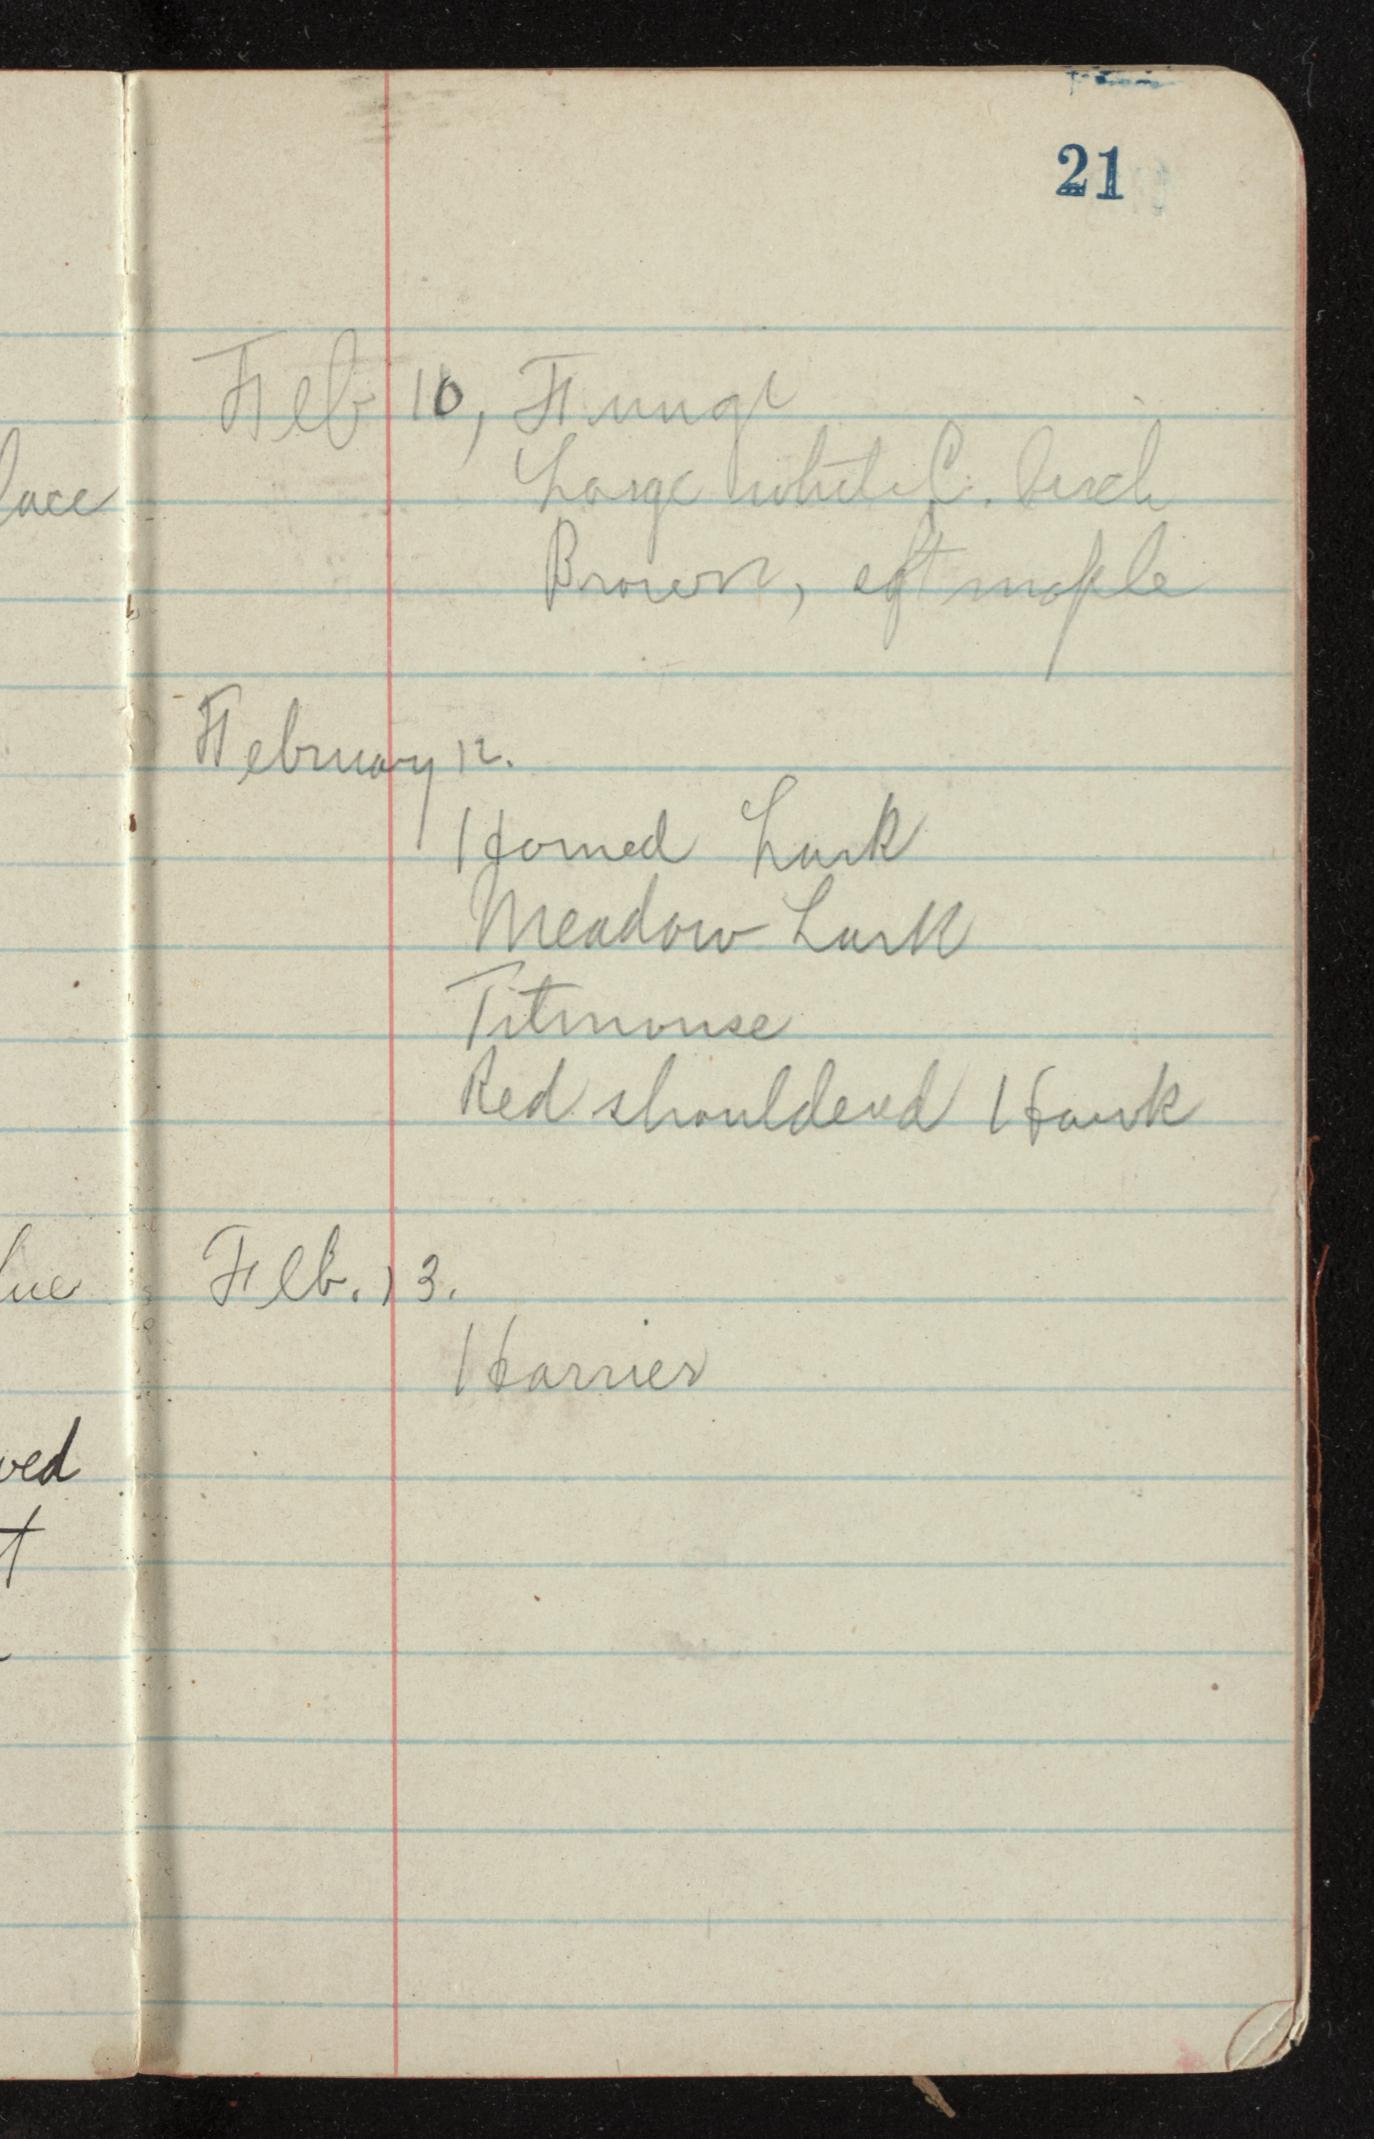 21
Feb 10, Fungi
Large white C. birch
Brown, maple
February 12.
Horned Lark
Meadow Lark
Titmouse
Red shouldered Hawk
Feb. 13.
Harrier